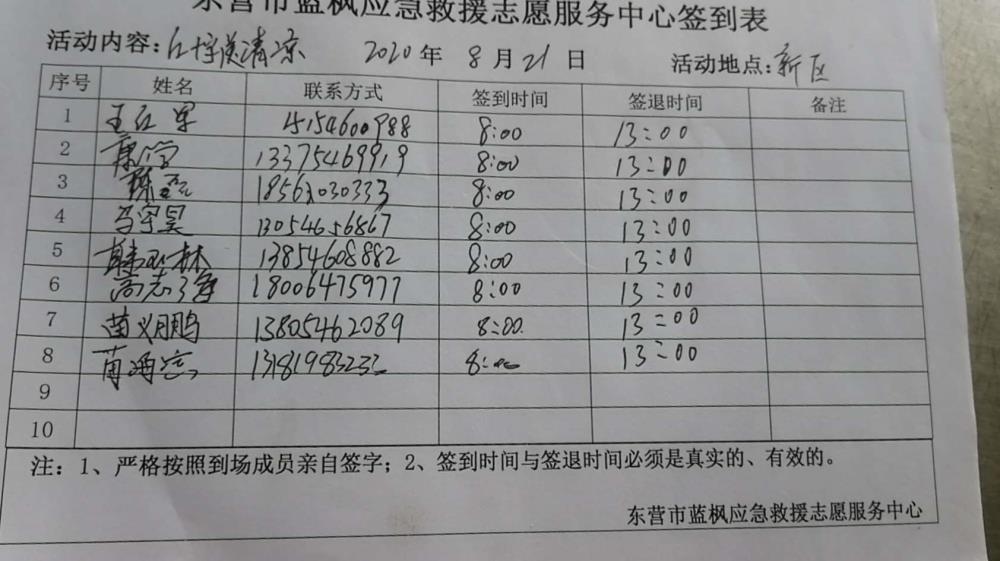 东营市蓝枫应急救援志愿服务中心签到表
活动内容: 清凉 2020 年 8 月 21 日 活动地点: 新区
序号 姓名 联系方式 签到时间 签退时间 备注
1 王红军 15154600988 8:00 13:00
2 13375469919 8:00 13:00
3 18562030333 8:00 13:00
4 马宇昊 13054656867 8:00 13:00
5 韩玉林 13854608882 8:00 13:00
6 高志 18006475977 8:00 13:00
7 苗义鹏 13805462089 8:00 13:00
8 13181983233 8:00 13:00
9
10
注: 1、严格按照到场成员亲自签字; 2、签到时间与签退时间必须是真实的、有效的。
东营市蓝枫应急救援志愿服务中心